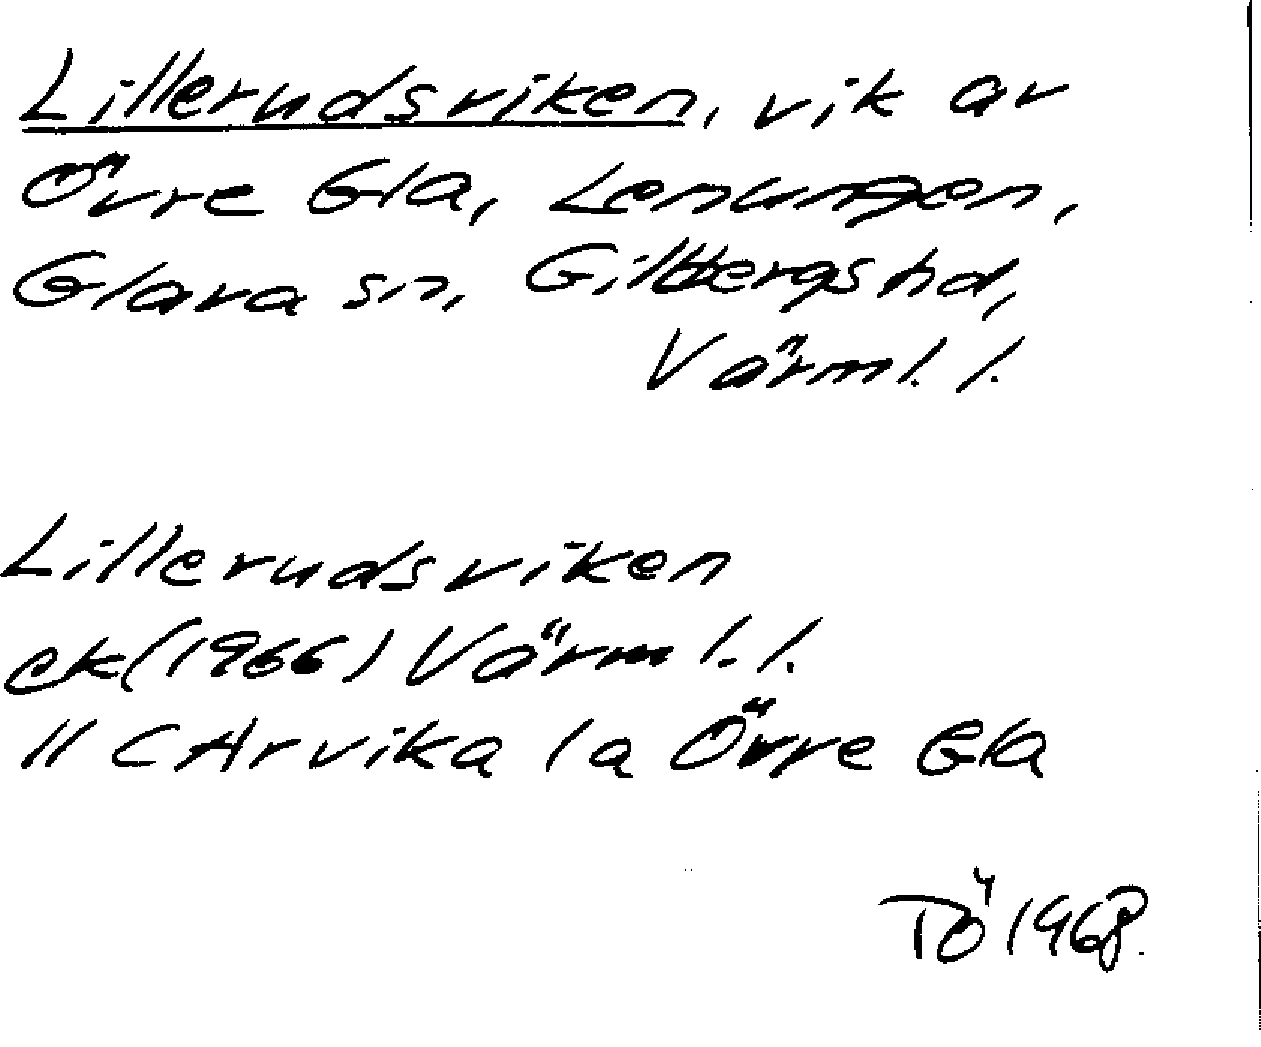 Lillerudsviken, vik av
Övre Gla, Lenungen,
Glava sn, Gillbergs hd,
Värml. l.
Lillerudsviken
ek (1966) Värml. l.
11 C Arvika 1 a Övre Gla
TÖ 1968.